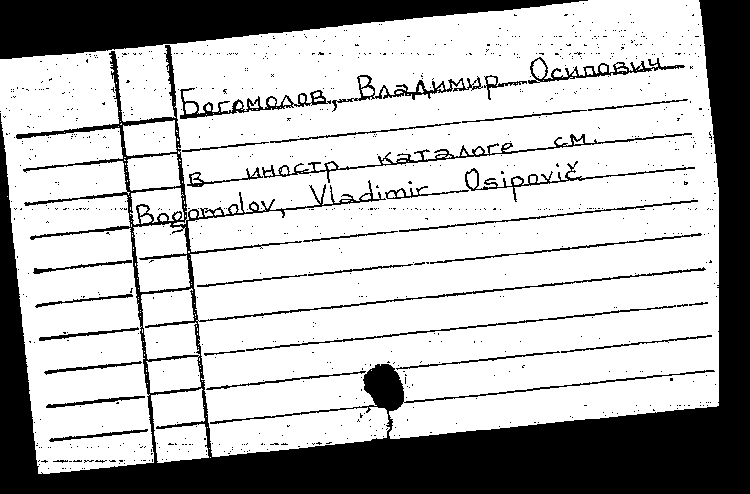 Богомолов, Владимир Осипович
в иностр. каталоге см.
Bogomolov, Vladimir Osipovič